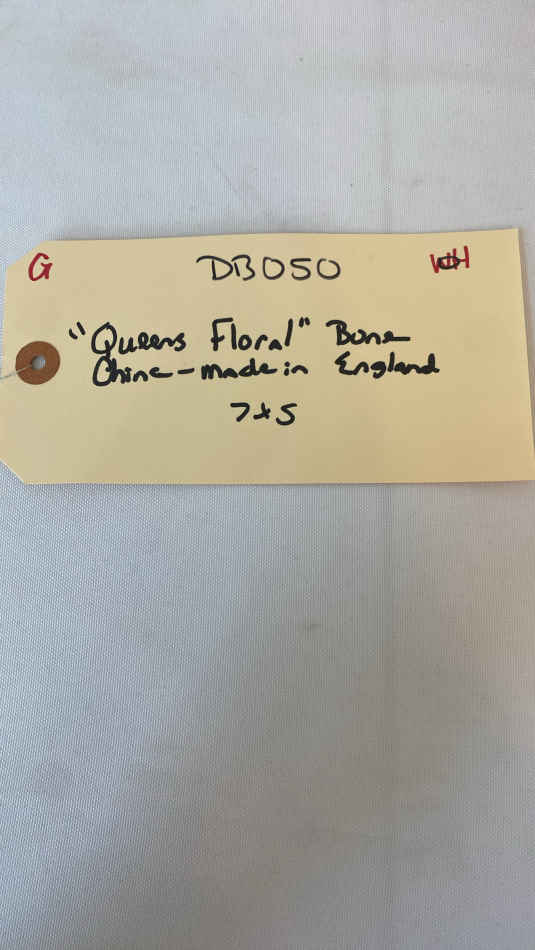 G DB050 WH
"Queens Floral" Bone
Chine - made in England
7x5